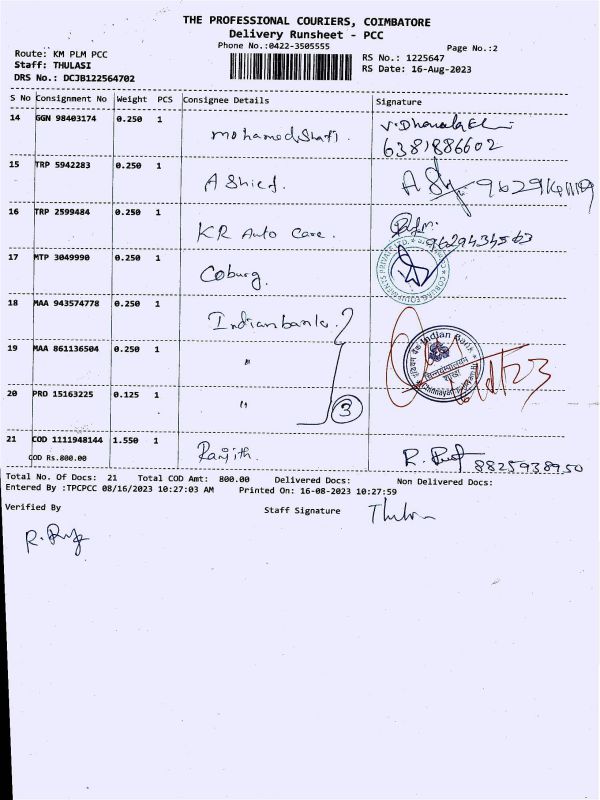 THE PROFESSIONAL COURIERS, COIMBATORE
Delivery Runsheet - PCC
Phone No.:0422-3505555
Page No.:2
Route: KM PLM PCC
Staff: THULASI
DRS No.: DCJB122564702
RS No.: 1225647
RS Date: 16-Aug-2023
S No Consignment No Weight PCS Consignee Details Signature
14 GGN 98403174 0.250 1 Mohamed Shafi. V. Dhanalakshmi
6381886602
15 TRP 5942283 0.250 1 A Shief.
16 TRP 2599484 0.250 1 KR Auto Care. 9629434563
17 MTP 3049990 0.250 1 Coburg.
18 MAA 943574778 0.250 1 Indian bank.
19 MAA 861136504 0.250 1 "
Indian Bank
20 PRO 15163225 0.125 1 " 3
21 COD 1111948144 1.550 1 Ranjith. 8825938950
COD Rs.800.00
Total No. Of Docs: 21 Total COD Amt: 800.00 Delivered Docs: Non Delivered Docs:
Entered By :TPCPCC 08/16/2023 10:27:03 AM Printed On: 16-08-2023 10:27:59
Verified By Staff Signature